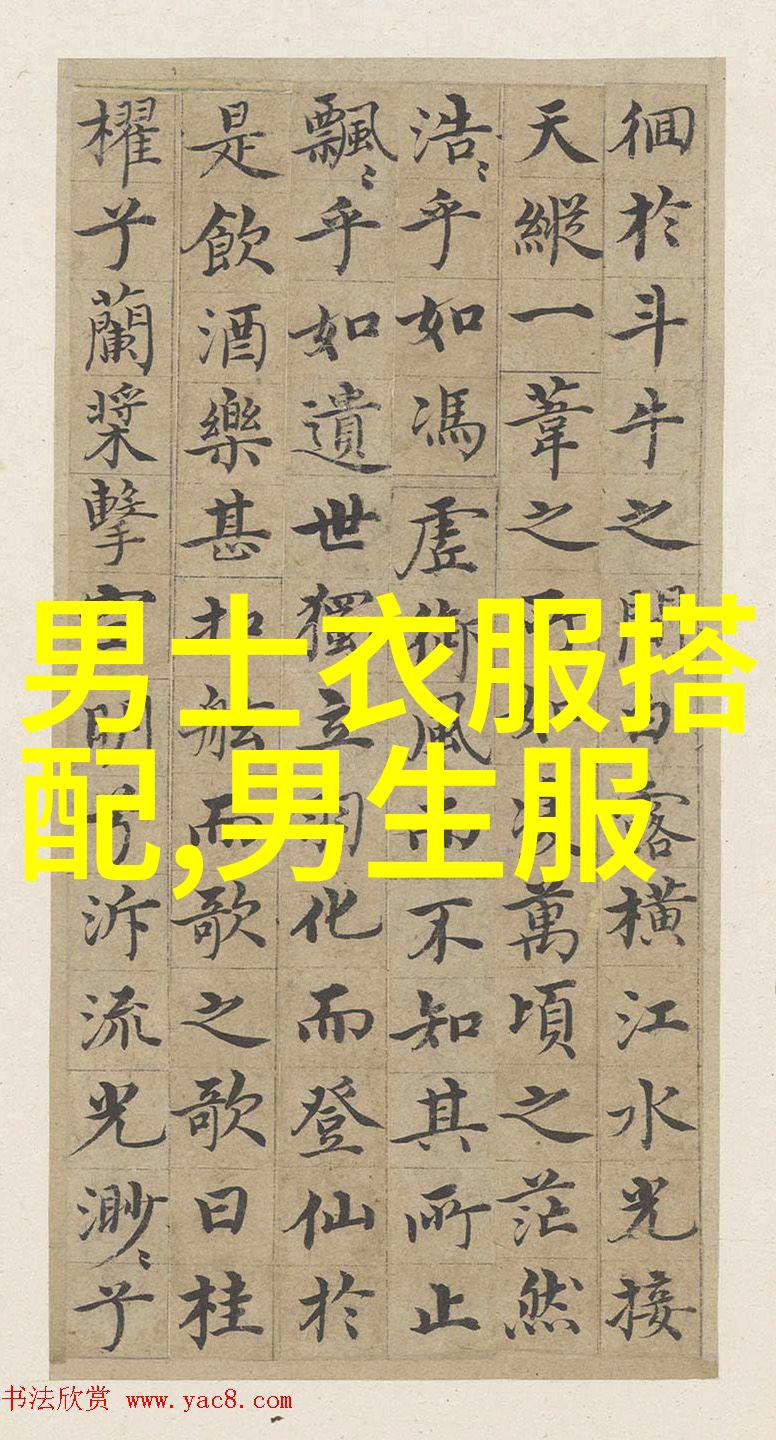 徊於斗牛之間白露橫江水光接
天縱一葦之所如淩萬頃之茫然
浩〻乎如馮虛御風而不知其所止
飄〻乎如遺世獨立羽化而登仙於
是飲酒樂甚扣舷而歌之歌曰桂
櫂兮蘭槳擊空明兮泝流光渺〻兮
男士衣服搭
配,男生服
书法欣赏 www.yac8.com